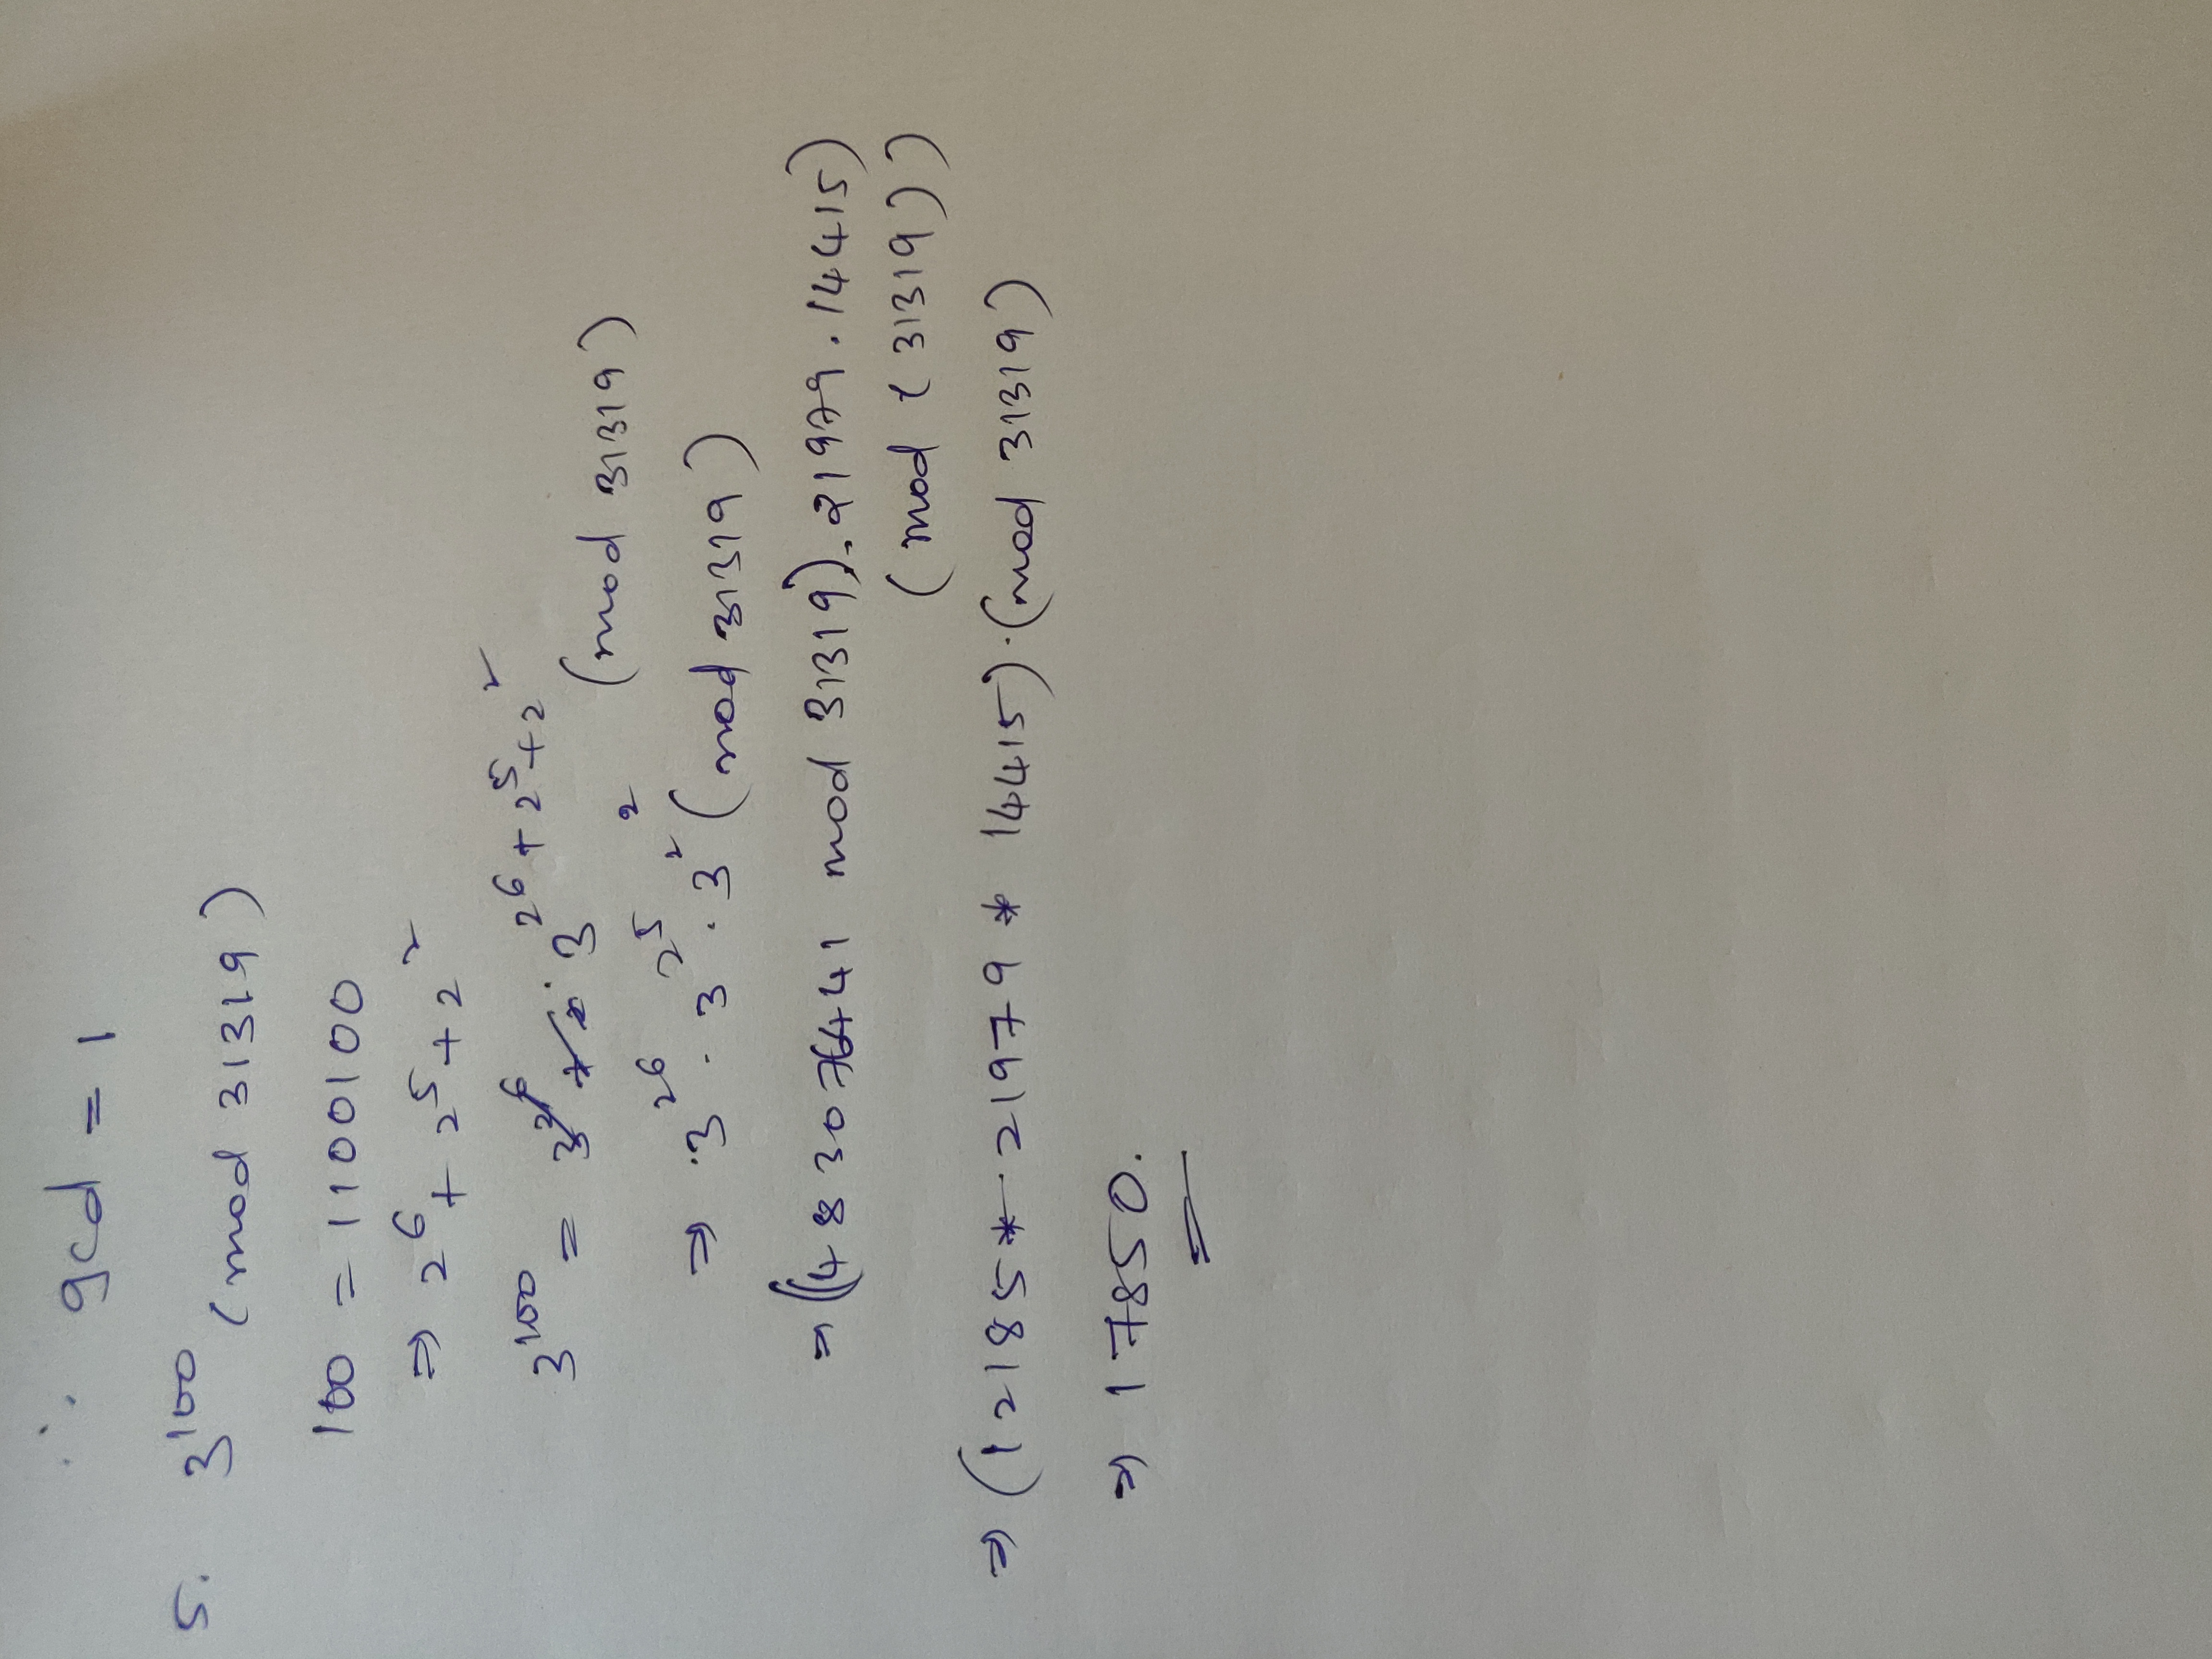 ∴ gcd = 1
5. 3^100 (mod 31319)
100 = 1100100
⇒ 2^6 + 2^5 + 2^2
3^100 = 3^(2^6 + 2^5 + 2^2) (mod 31319)
⇒ 3^2^6 . 3^2^5 . 3^2^2 (mod 31319)
⇒ ((483076441 mod 31319). 21979 . 14415)
(mod (31319))
⇒ (12185 * 21979 * 14415) . (mod 31319)
⇒ 17850.